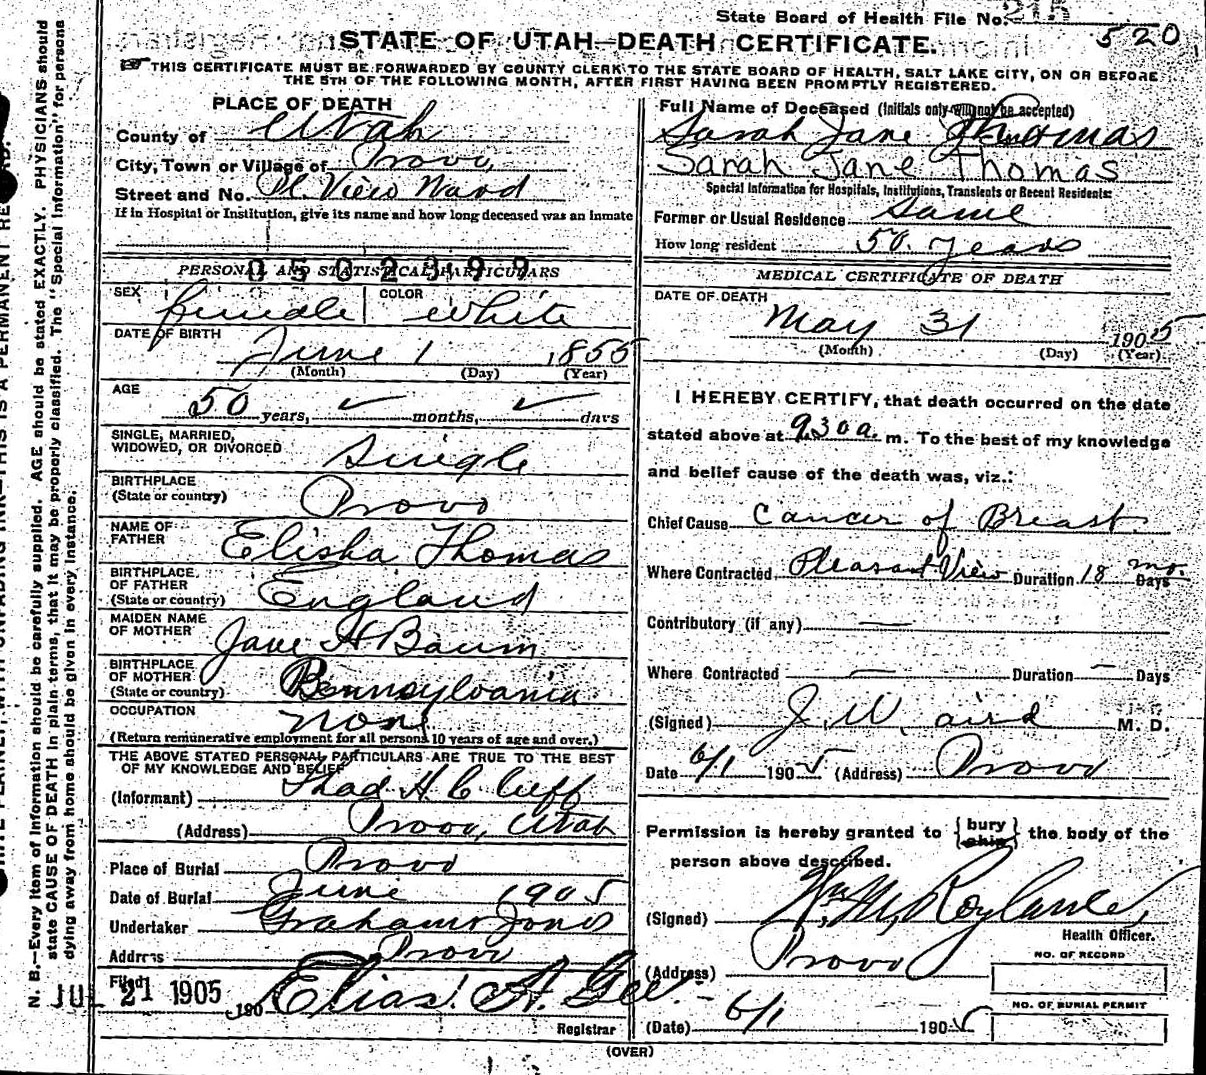 State Board of Health File No. 215
520
STATE OF UTAH—DEATH CERTIFICATE.
THIS CERTIFICATE MUST BE FORWARDED BY COUNTY CLERK TO THE STATE BOARD OF HEALTH, SALT LAKE CITY, ON OR BEFORE
THE 5TH OF THE FOLLOWING MONTH, AFTER FIRST HAVING BEEN PROMPTLY REGISTERED.
PLACE OF DEATH
County of Utah
City, Town or Village of Provo,
Street and No. Pl. View Ward
If in Hospital or Institution, give its name and how long deceased was an inmate
0502399
PERSONAL AND STATISTICAL PARTICULARS
SEX female COLOR white
DATE OF BIRTH
June 1 1855
(Month) (Day) (Year)
AGE
50 years, months, days
SINGLE, MARRIED,
WIDOWED, OR DIVORCED Single
BIRTHPLACE
(State or country) Provo
NAME OF
FATHER Elisha Thomas
BIRTHPLACE
OF FATHER
(State or country) England
MAIDEN NAME
OF MOTHER Jane H Baum
BIRTHPLACE
OF MOTHER
(State or country) Pennsylvania
OCCUPATION none
(Return remunerative employment for all persons 10 years of age and over.)
THE ABOVE STATED PERSONAL PARTICULARS ARE TRUE TO THE BEST
OF MY KNOWLEDGE AND BELIEF
(Informant) Thad H. C. Cluff
(Address) Provo, Utah
Place of Burial Provo
Date of Burial June 1905
Undertaker Graham & Jones
Address Provo
Filed JUL 21 1905 190
Elias A. Gee.
Registrar
Full Name of Deceased (Initials only will not be accepted)
Sarah Jane Thomas
Sarah Jane Thomas
Special Information for Hospitals, Institutions, Transients or Recent Residents:
Former or Usual Residence Same
How long resident 50 years
MEDICAL CERTIFICATE OF DEATH
DATE OF DEATH
May 31 1905
(Month) (Day) (Year)
I HEREBY CERTIFY, that death occurred on the date
stated above at 9.30 a. m. To the best of my knowledge
and belief cause of the death was, viz.:
Chief Cause Cancer of Breast
Where Contracted Pleasant View Duration 18 mo. Days
Contributory (if any) —
Where Contracted — Duration — Days
(Signed) J. W. Aird M. D.
Date 6/1 1905 (Address) Provo
Permission is hereby granted to {bury ship} the body of the
person above described.
(Signed) Wm. M. Roylance,
Health Officer.
(Address) Provo
NO. OF RECORD
NO. OF BURIAL PERMIT
(Date) 6/1 1905
(OVER)
N. B.—Every item of information should be carefully supplied. AGE should be stated EXACTLY. PHYSICIANS should
state CAUSE OF DEATH in plain terms, that it may be properly classified. The "Special Information" for persons
dying away from home should be given in every instance.
THIS IS A PERMANENT